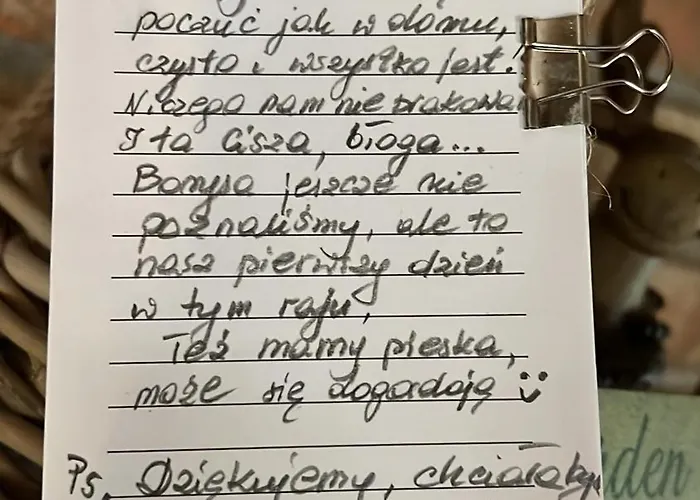 poczuć jak w domu,
czysto i wszystko jest.
Niczego nam nie brakowa
I ta cisza, błoga...
Borysa jeszcze nie
poznaliśmy, ale to
nasz pierwszy dzień
w tym raju,
Też mamy pieska,
może się dogadają ☺
Ps. Dziękujemy, chciałaby
den